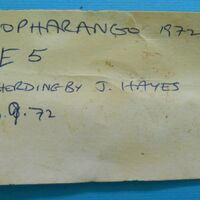 OPHARANGO 1972
E 5
HERDING BY J. HAYES
.9.72